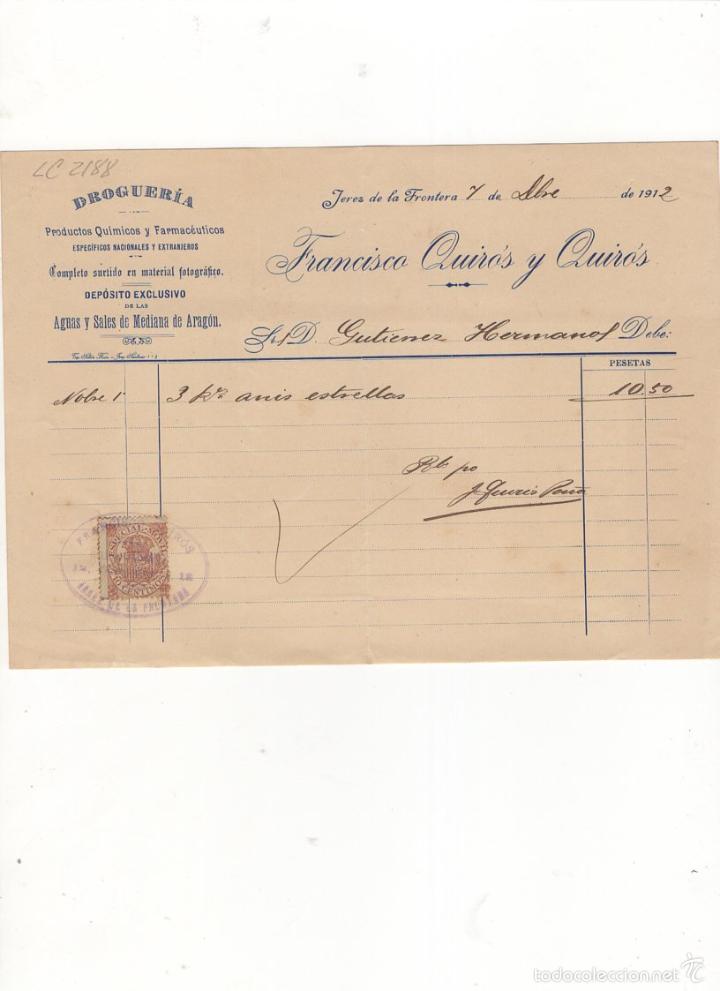 LC 2188
DROGUERÍA
Productos Químicos y Farmacéuticos
ESPECÍFICOS NACIONALES Y EXTRANJEROS
Completo surtido en material fotográfico.
DEPÓSITO EXCLUSIVO
DE LAS
Aguas y Sales de Mediana de Aragón.
Jerez de la Frontera 7 de Dbre de 1912
Francisco Quirós y Quirós
Sr. D. Gutierrez Hermanos Debe:
PESETAS
Nobre 1 3 Ks anis estrellas 10.50
Rbi po
ESPECIAL MOVIL
10 CENTIMOS
JEREZ DE LA FRONTERA
todocoleccion.net